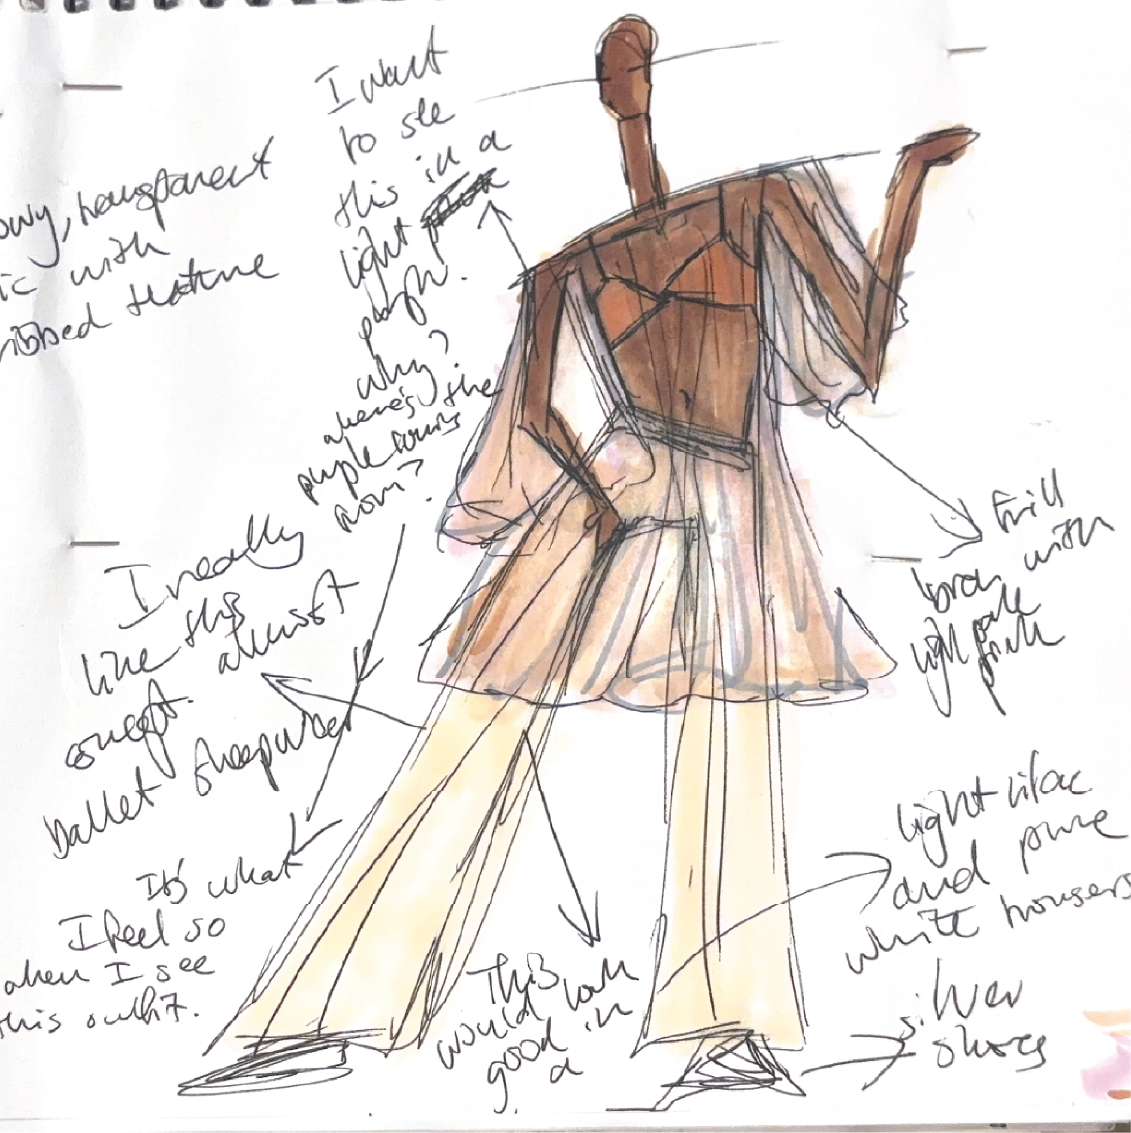 transparent
ic with
ribbed texture
I want
to see
this in a
light
why?
where's the
purple coming
from?
I really
like this
concept. almost
ballet
It's what
I feel so
when I see
this outfit.
This
would look
good in
a
frill
with
light pale
pink
light lilac
and pure
white trousers
silver
shoes